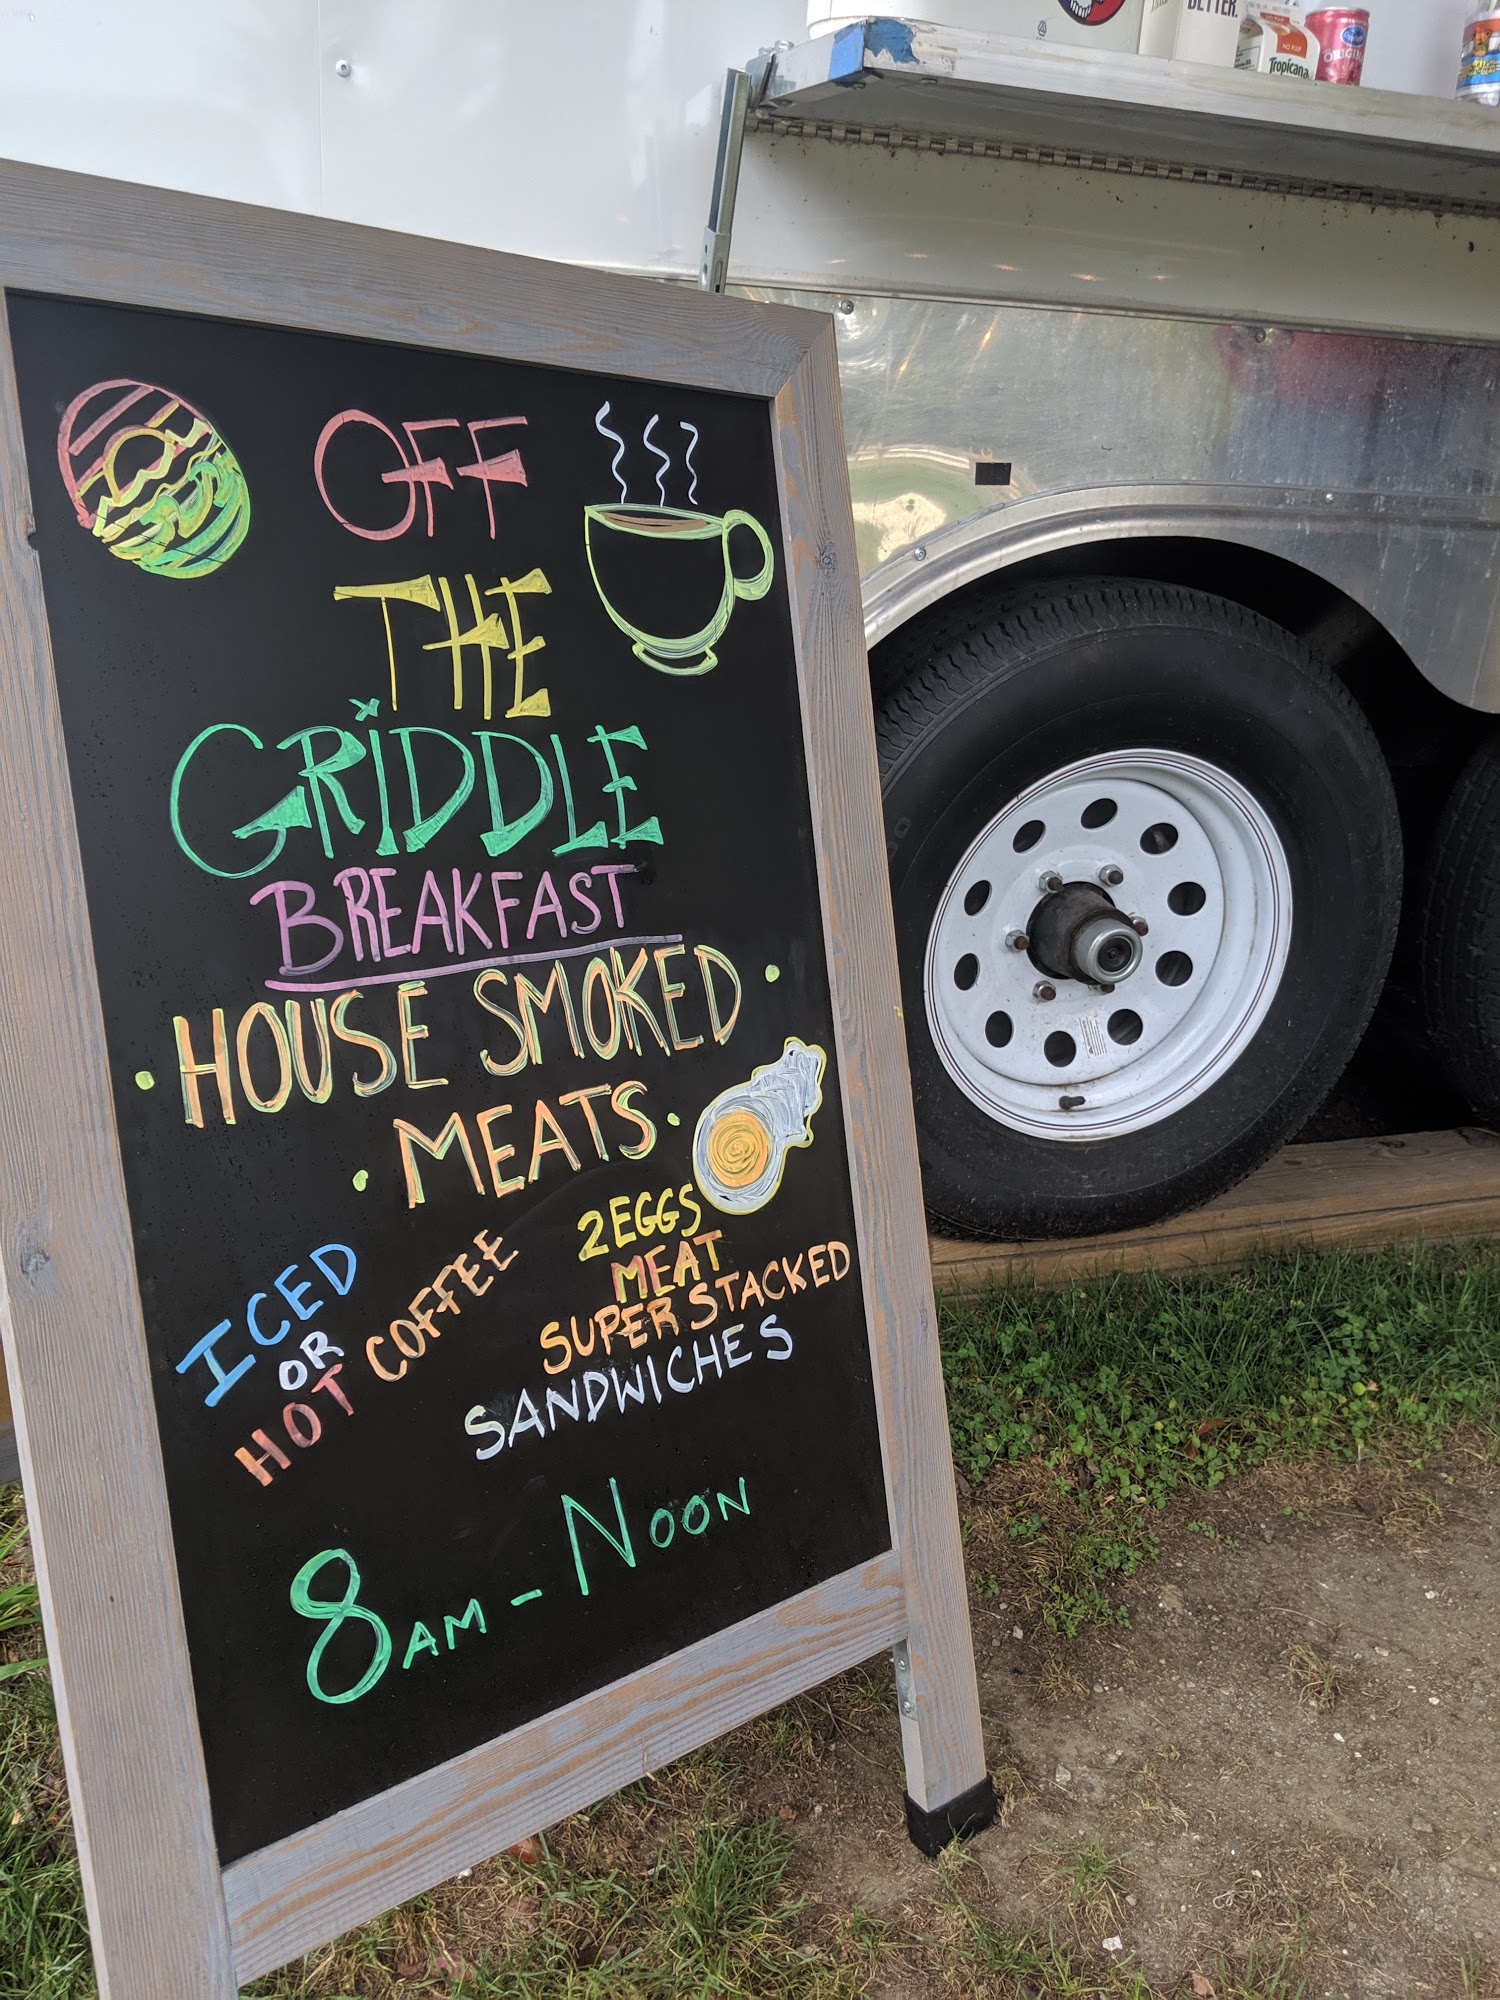 BETTER.
NO PULP
Tropicana
ORIGINAL
OFF
THE
GRIDDLE
BREAKFAST
• HOUSE SMOKED •
• MEATS •
ICED
OR
HOT COFFEE
2 EGGS
MEAT
SUPER STACKED
SANDWICHES
8AM - NOON